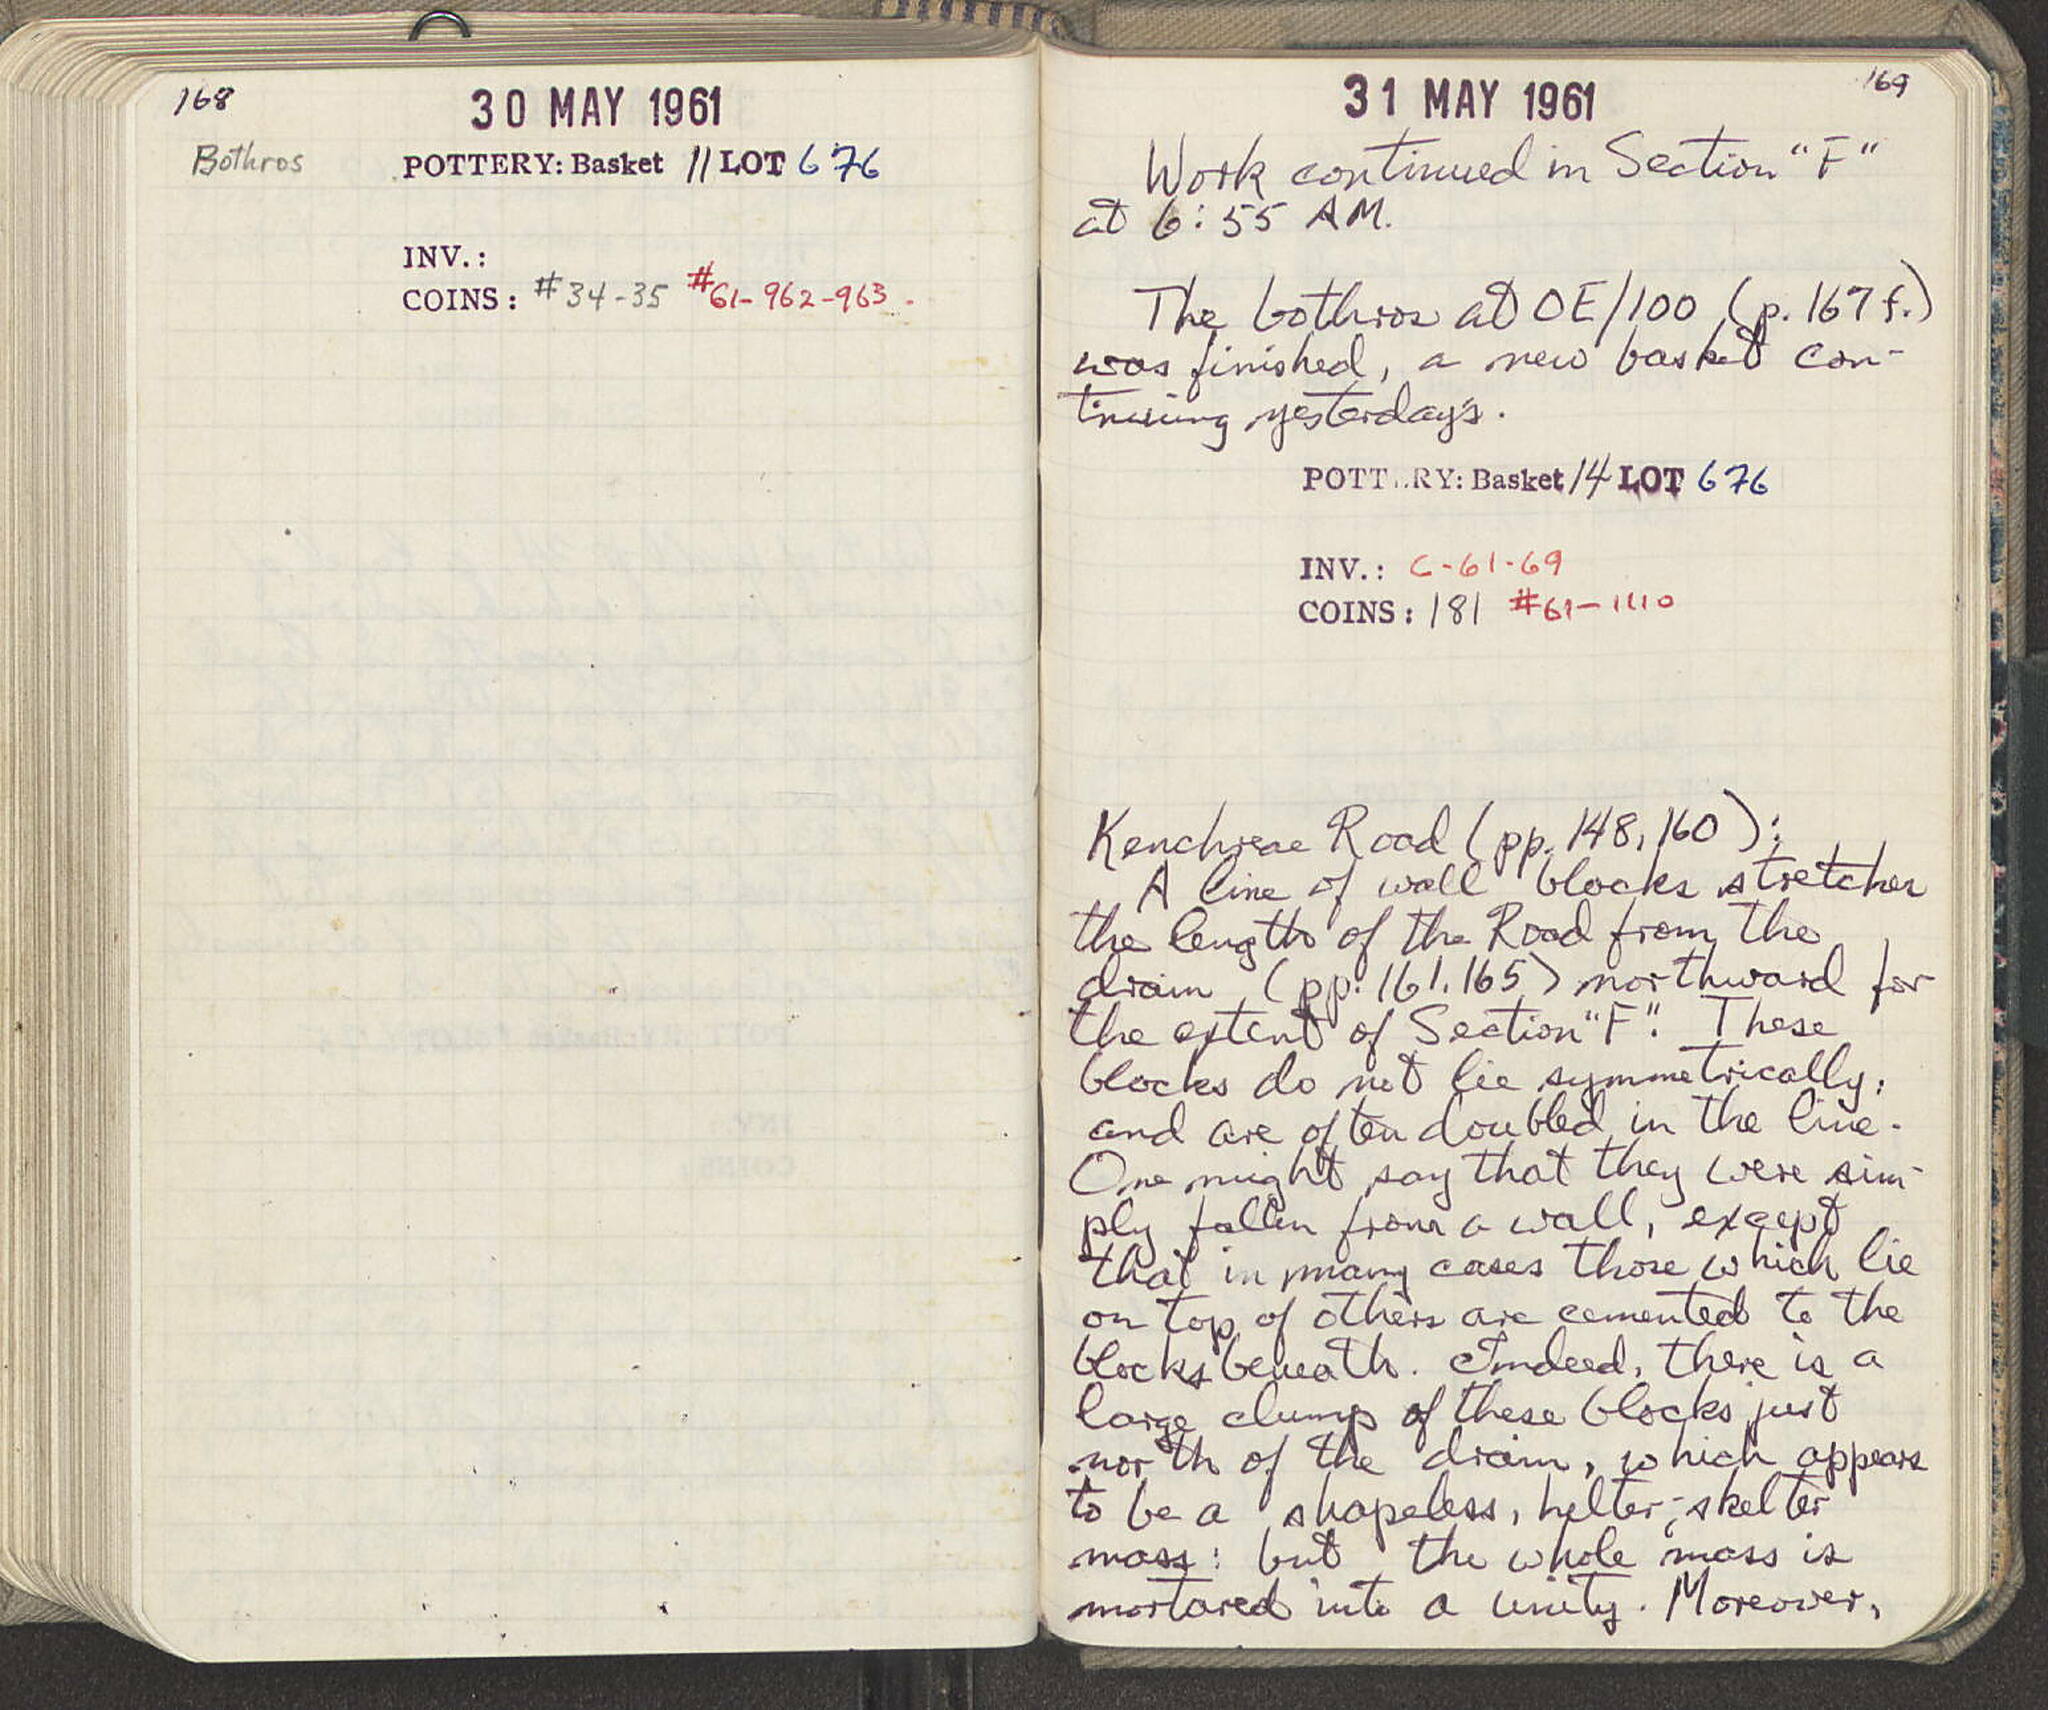 168
30 MAY 1961
Bothros
POTTERY: Basket 11 LOT 676
INV.:
COINS: #34-35 #61-962-963.
169
31 MAY 1961
Work continued in Section "F"
at 6:55 AM.
The bothros at OE/100 (p. 167 f.)
was finished, a new basket con-
tinuing yesterday's.
POTT RY: Basket 14 LOT 676
INV.: C-61-69
COINS: 181 #61-1110
Kenchreae Road (pp. 148, 160):
A line of wall blocks stretches
the length of the Road from the
drain (pp. 161, 165) northward for
the extent of Section "F". These
blocks do not lie symmetrically,
and are often doubled in the line.
One might say that they were sim-
ply fallen from a wall, except
that in many cases those which lie
on top of others are cemented to the
blocks beneath. Indeed, there is a
large clump of these blocks just
north of the drain, which appears
to be a shapeless, helter-skelter
mass: but the whole mass is
mortared into a unity. Moreover,